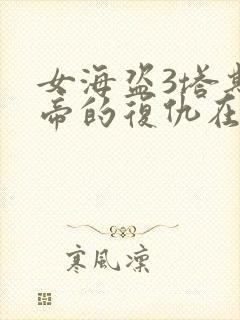 女海盗3塔斯
帝的復仇在
寒風凜